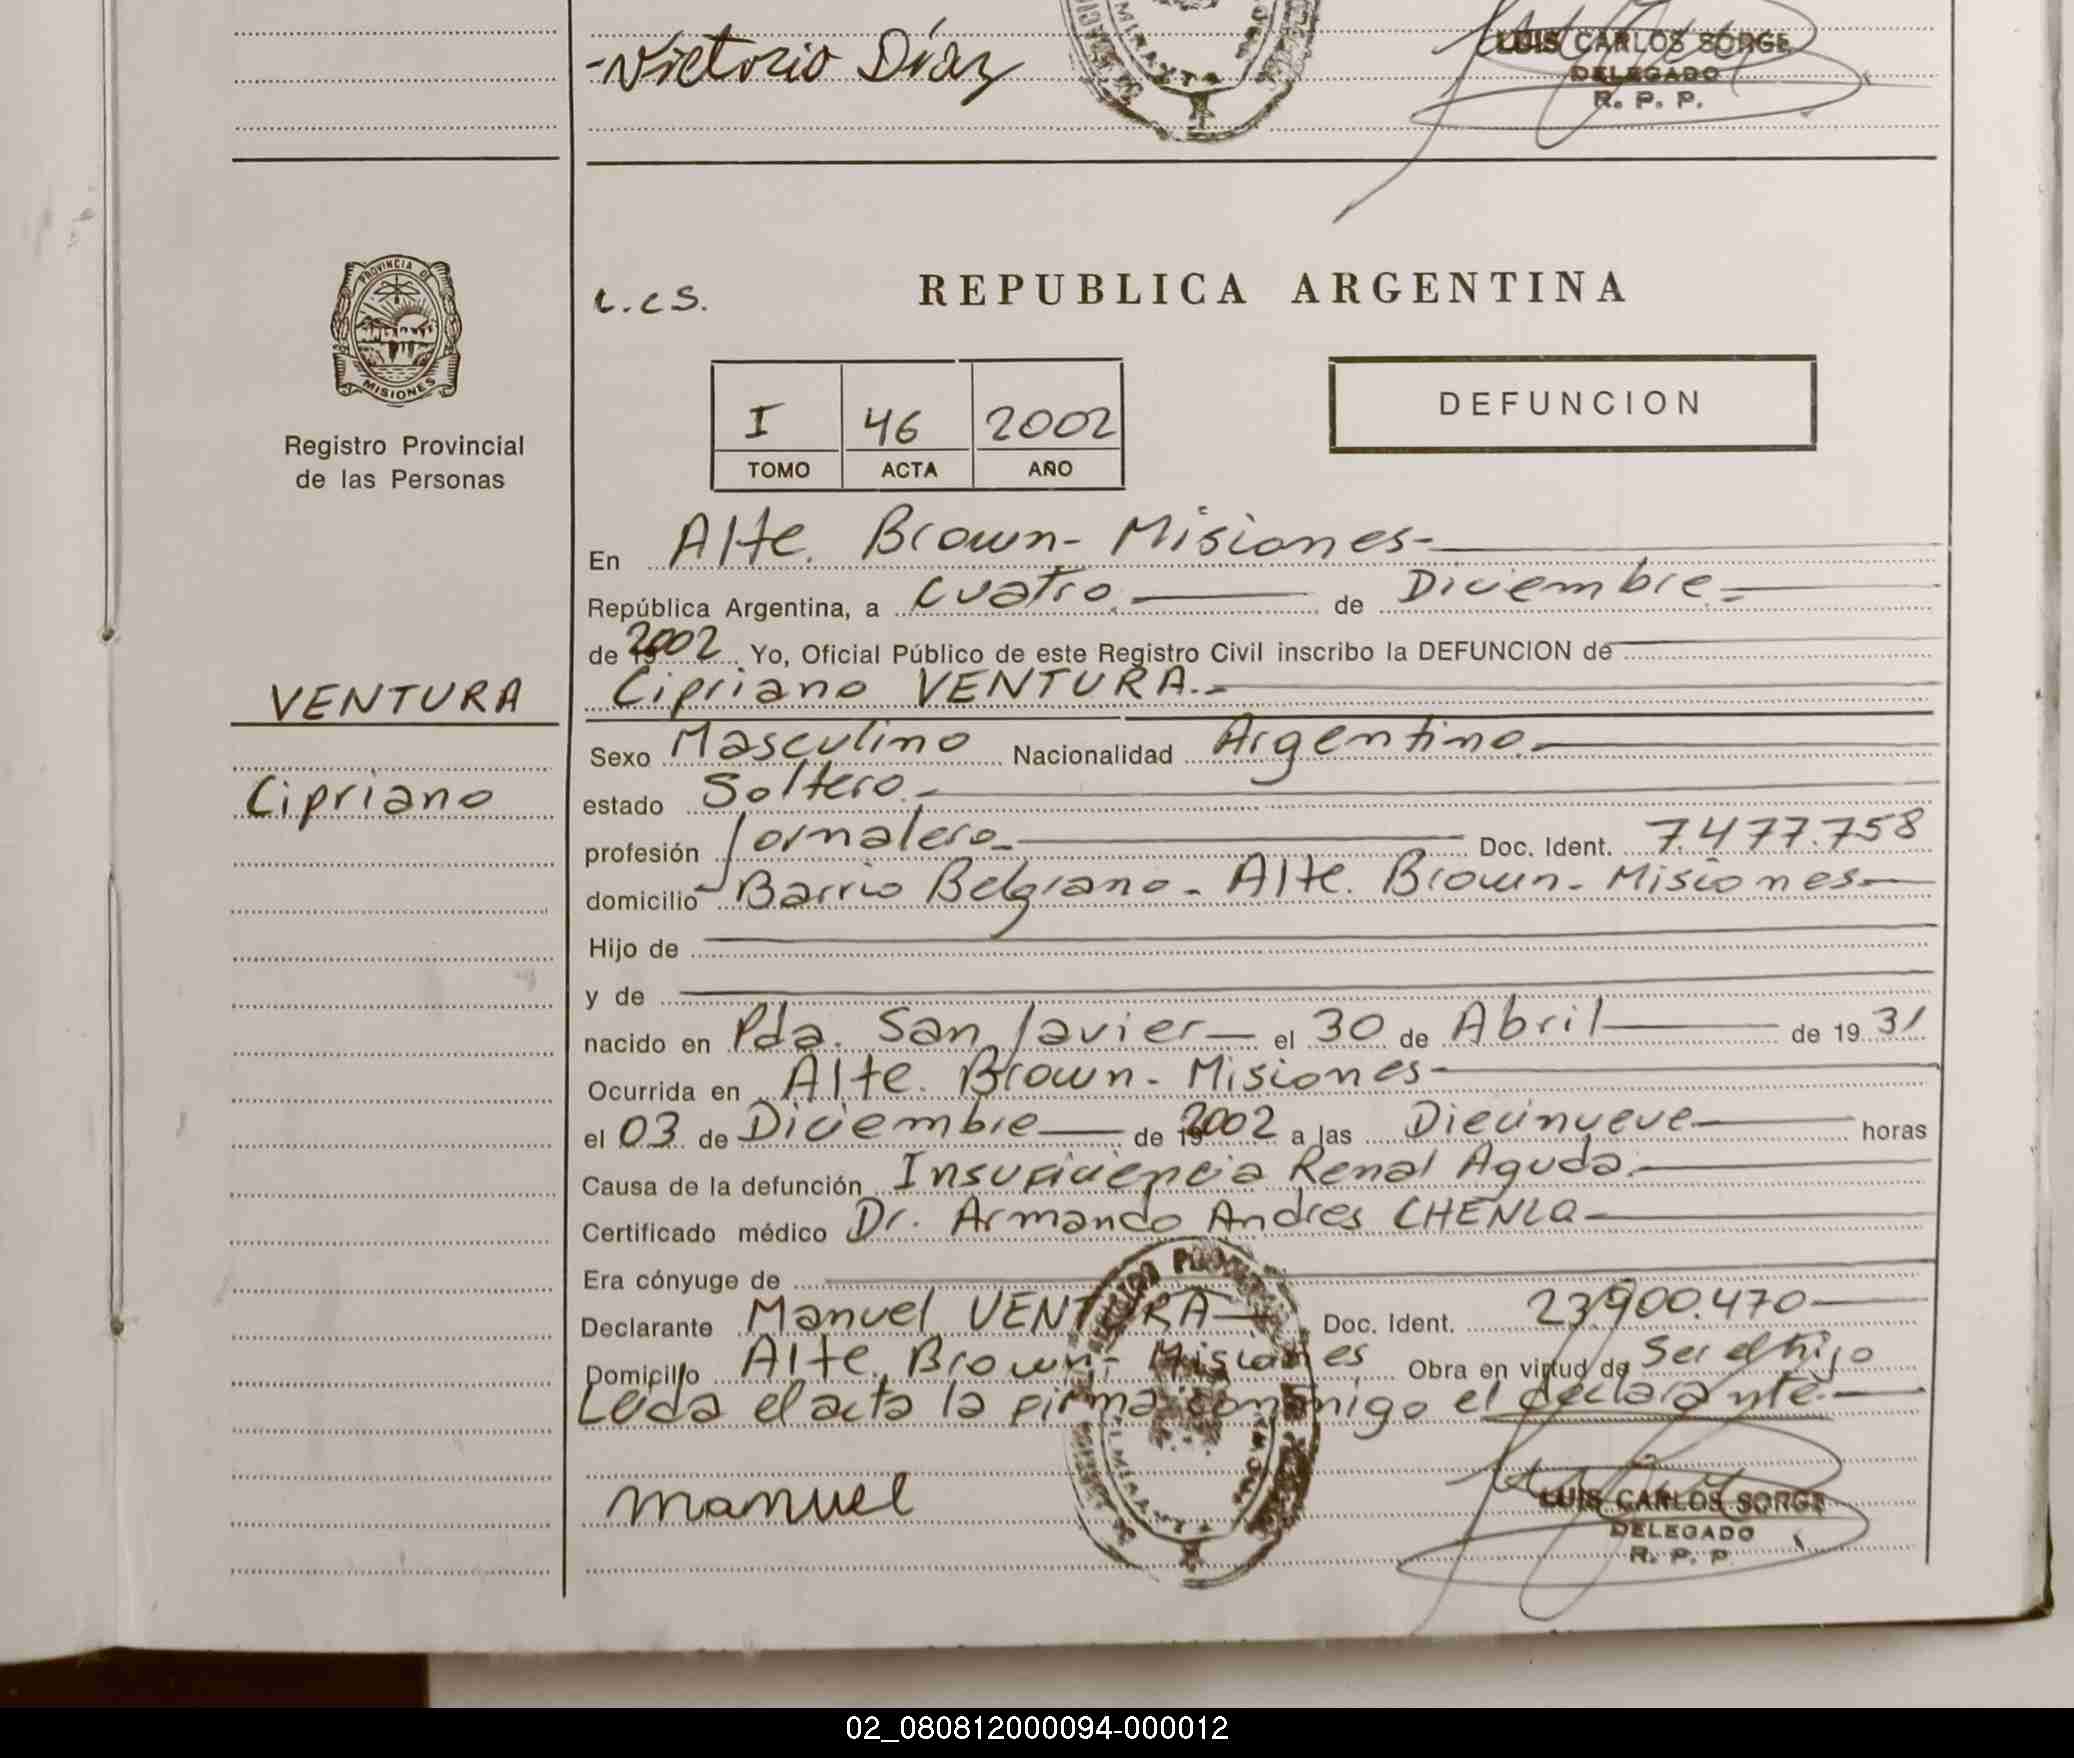 -Victorio Díaz
LUIS CARLOS SORGE
DELEGADO
R. P. P.
PROVINCIA DE
MISIONES
Registro Provincial
de las Personas
L.C.S.
REPUBLICA ARGENTINA
I 46 2002
TOMO ACTA AÑO
DEFUNCION
En Alte. Brown- Misiones-
República Argentina, a cuatro. de Diciembre.-
de 2002 Yo, Oficial Público de este Registro Civil inscribo la DEFUNCION de
VENTURA
Cipriano VENTURA.-
Sexo Masculino Nacionalidad Argentino.
Cipriano
estado Soltero.-
profesión Jornalero.- Doc. Ident. 7.477.758
domicilio Barrio Belgrano. Alte. Brown. Misiones
Hijo de
y de
nacido en Pda. San Javier el 30 de Abril de 19 31
Ocurrida en Alte. Brown. Misiones-
el 03 de Diciembre de 2002 a las Diecinueve horas
Causa de la defunción Insuficiencia Renal Aguda.
Certificado médico Dr. Armando Andres CHENLO
Era cónyuge de
Declarante Manuel VENTURA Doc. Ident. 23.900.470
Domicilio Alte. Brown- Misiones Obra en virtud de Ser el hijo
Leida el acta la firma conmigo el declarante.
manuel
LUIS CARLOS SORGE
DELEGADO
R. P. P.
02_080812000094-000012